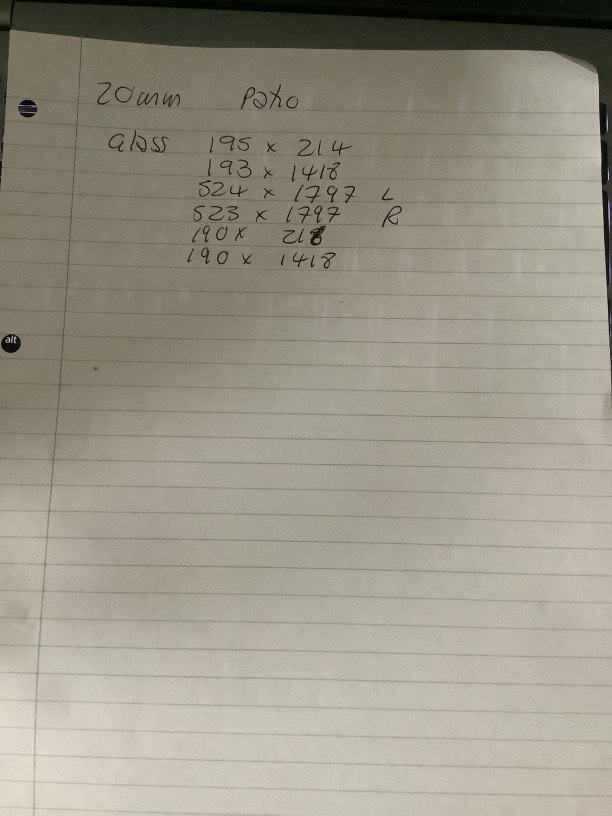 20mm Patio
Glass 195 x 214
193 x 1418
524 x 1797 L
523 x 1797 R
190 x 218
190 x 1418
alt